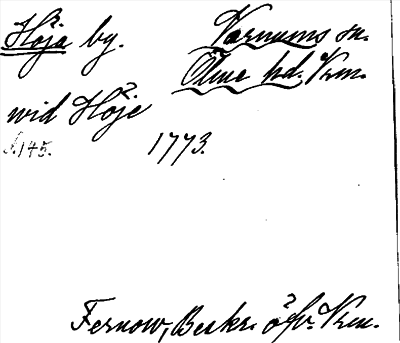 Höja by.
Varnums sn.
Ölme hd. Vrm.
wid Höje
s. 145. 1773.
Fernow, Beskr. öfv. Vrm.